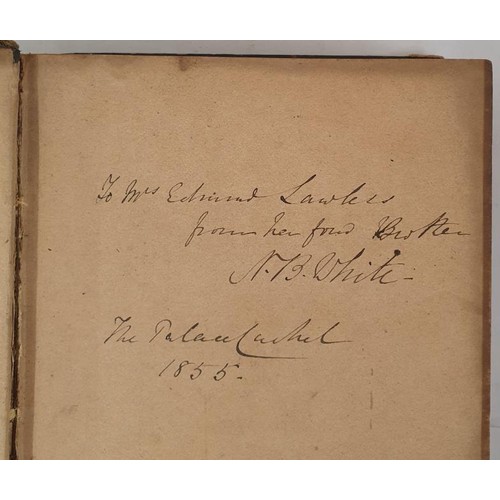 To Mrs Edmund Lawless
from her fond Brother
N. B. White -
The Palace Cashel
1855 -